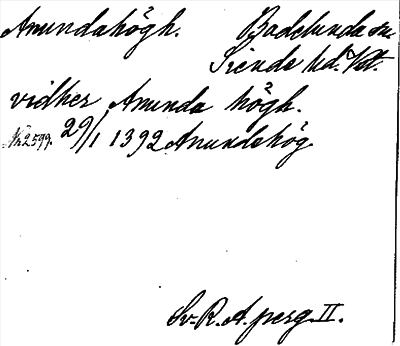 Anundahögh. Badelunda sn
Siende hd. Vstl.
vidher Anunda högh.
N: 2599. 29/1 1392 Anundehög
Sv. R. A. perg. II.